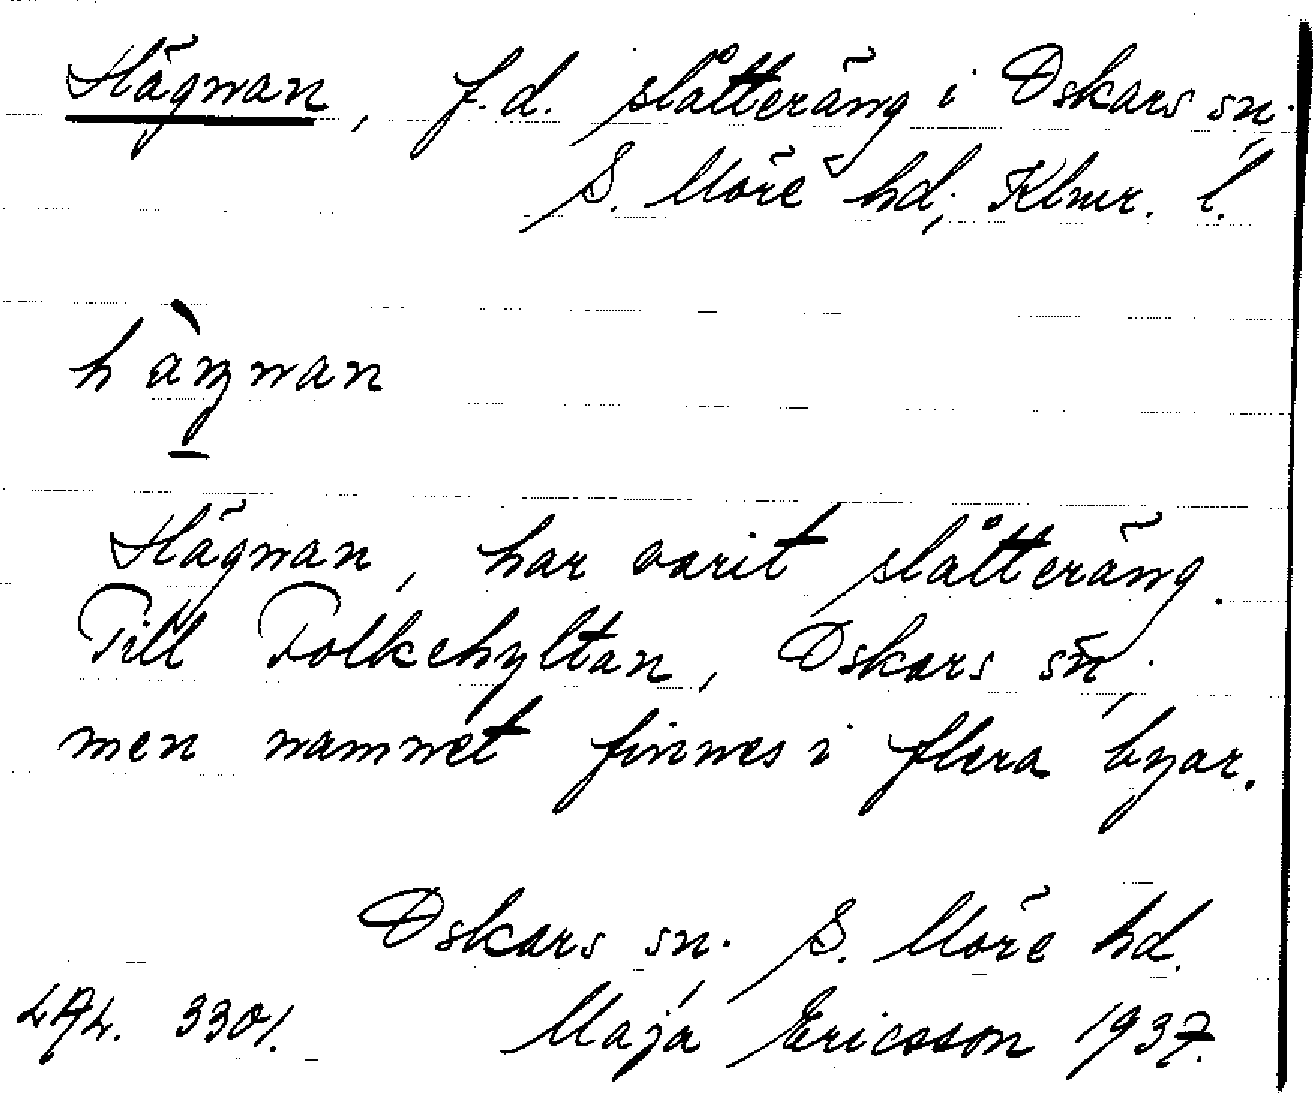 Hägnan, f.d. slåtteräng i Oskars sn.
S. Möre hd, Klmr. l.
hàŋnan
Hägnan, har varit slåtteräng.
Till Folkehyltan, Oskars sn,
men namnet finnes i flera byar.
Oskars sn. S. Möre hd.
3301. Maja Ericsson 1937.